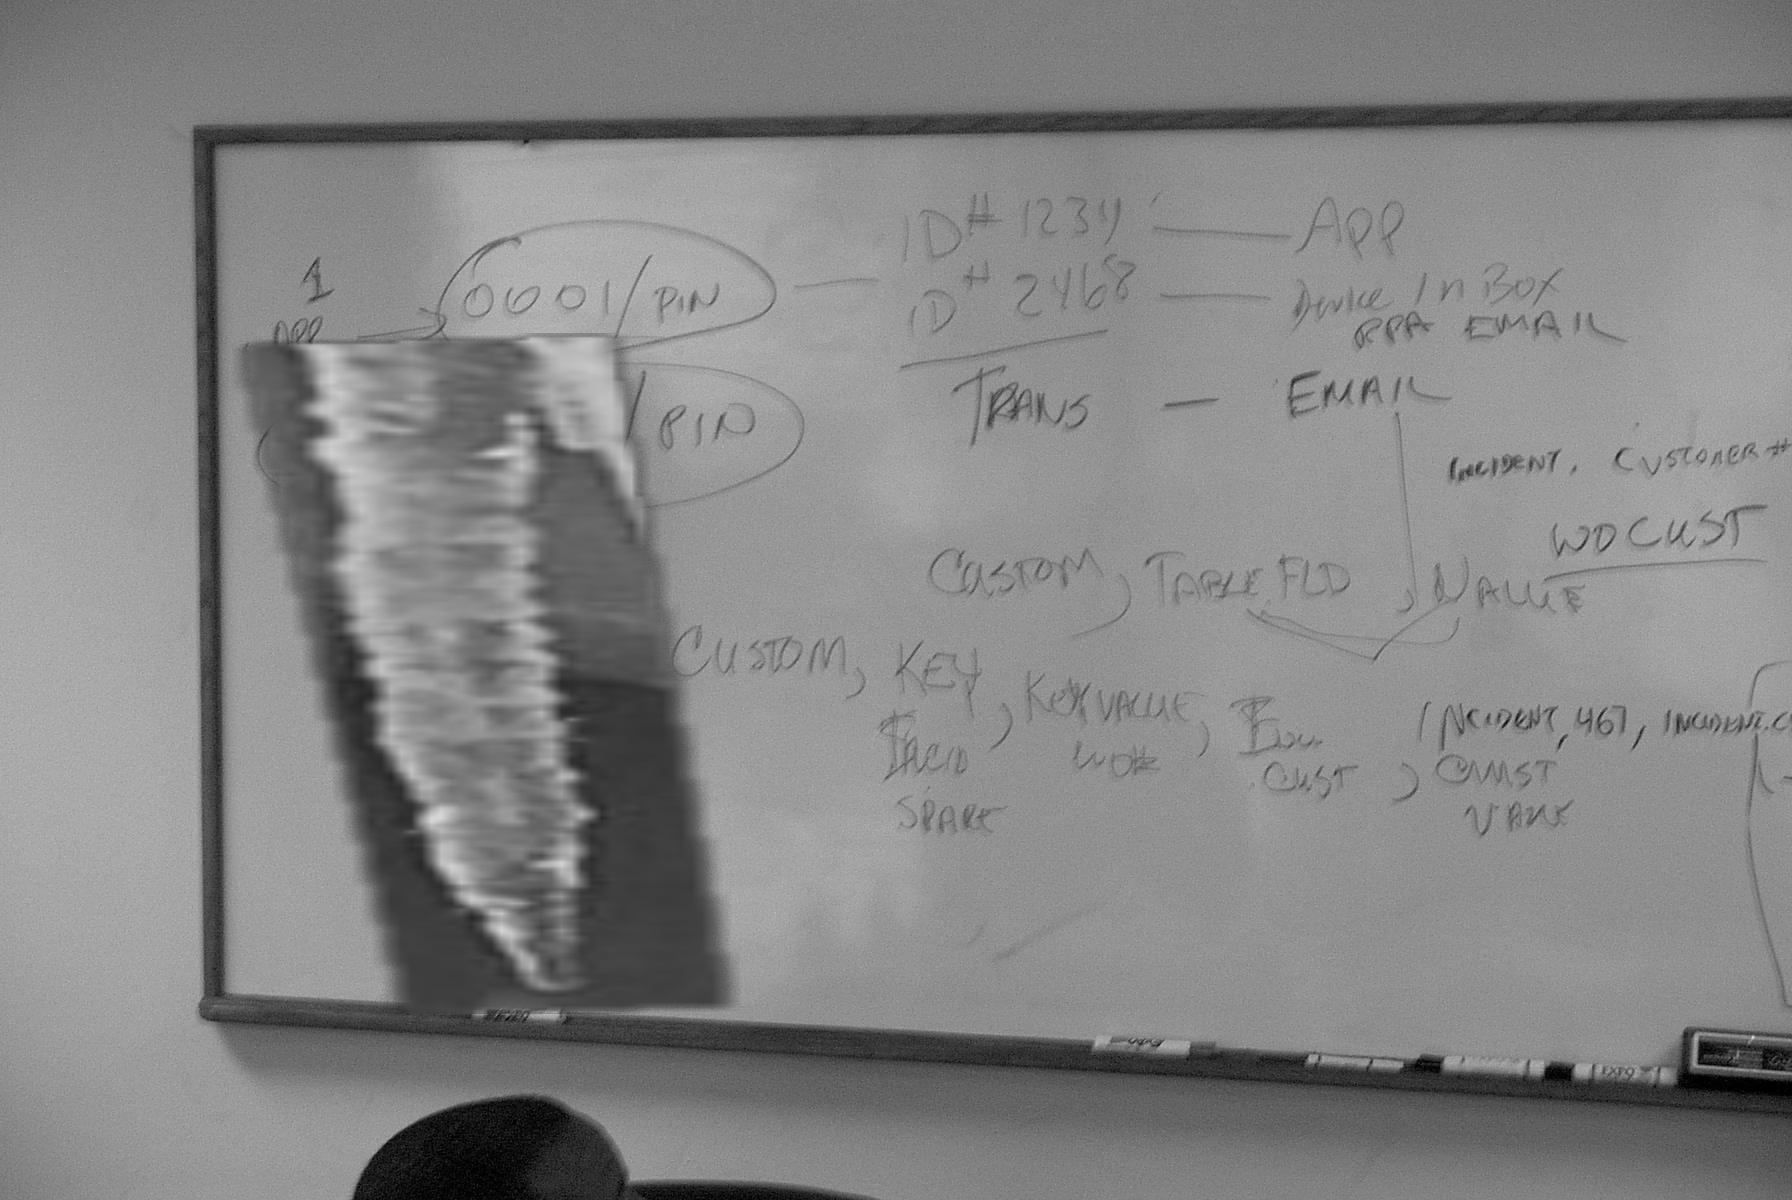 1
APP
0001/PIN
ID# 1234 — APP
ID# 2468 — Device In Box
RPA EMAIL
/PIN
TRANS — EMAIL
INCIDENT, CUSTOMER#
WOCUST
CUSTOM, TABLE.FLD, VALUE
CUSTOM, KEY, KEYVALUE, INCIDENT, 467, INCIDENT.C
WO#
CUST, CUST
SPARE
VALUE
EXPO